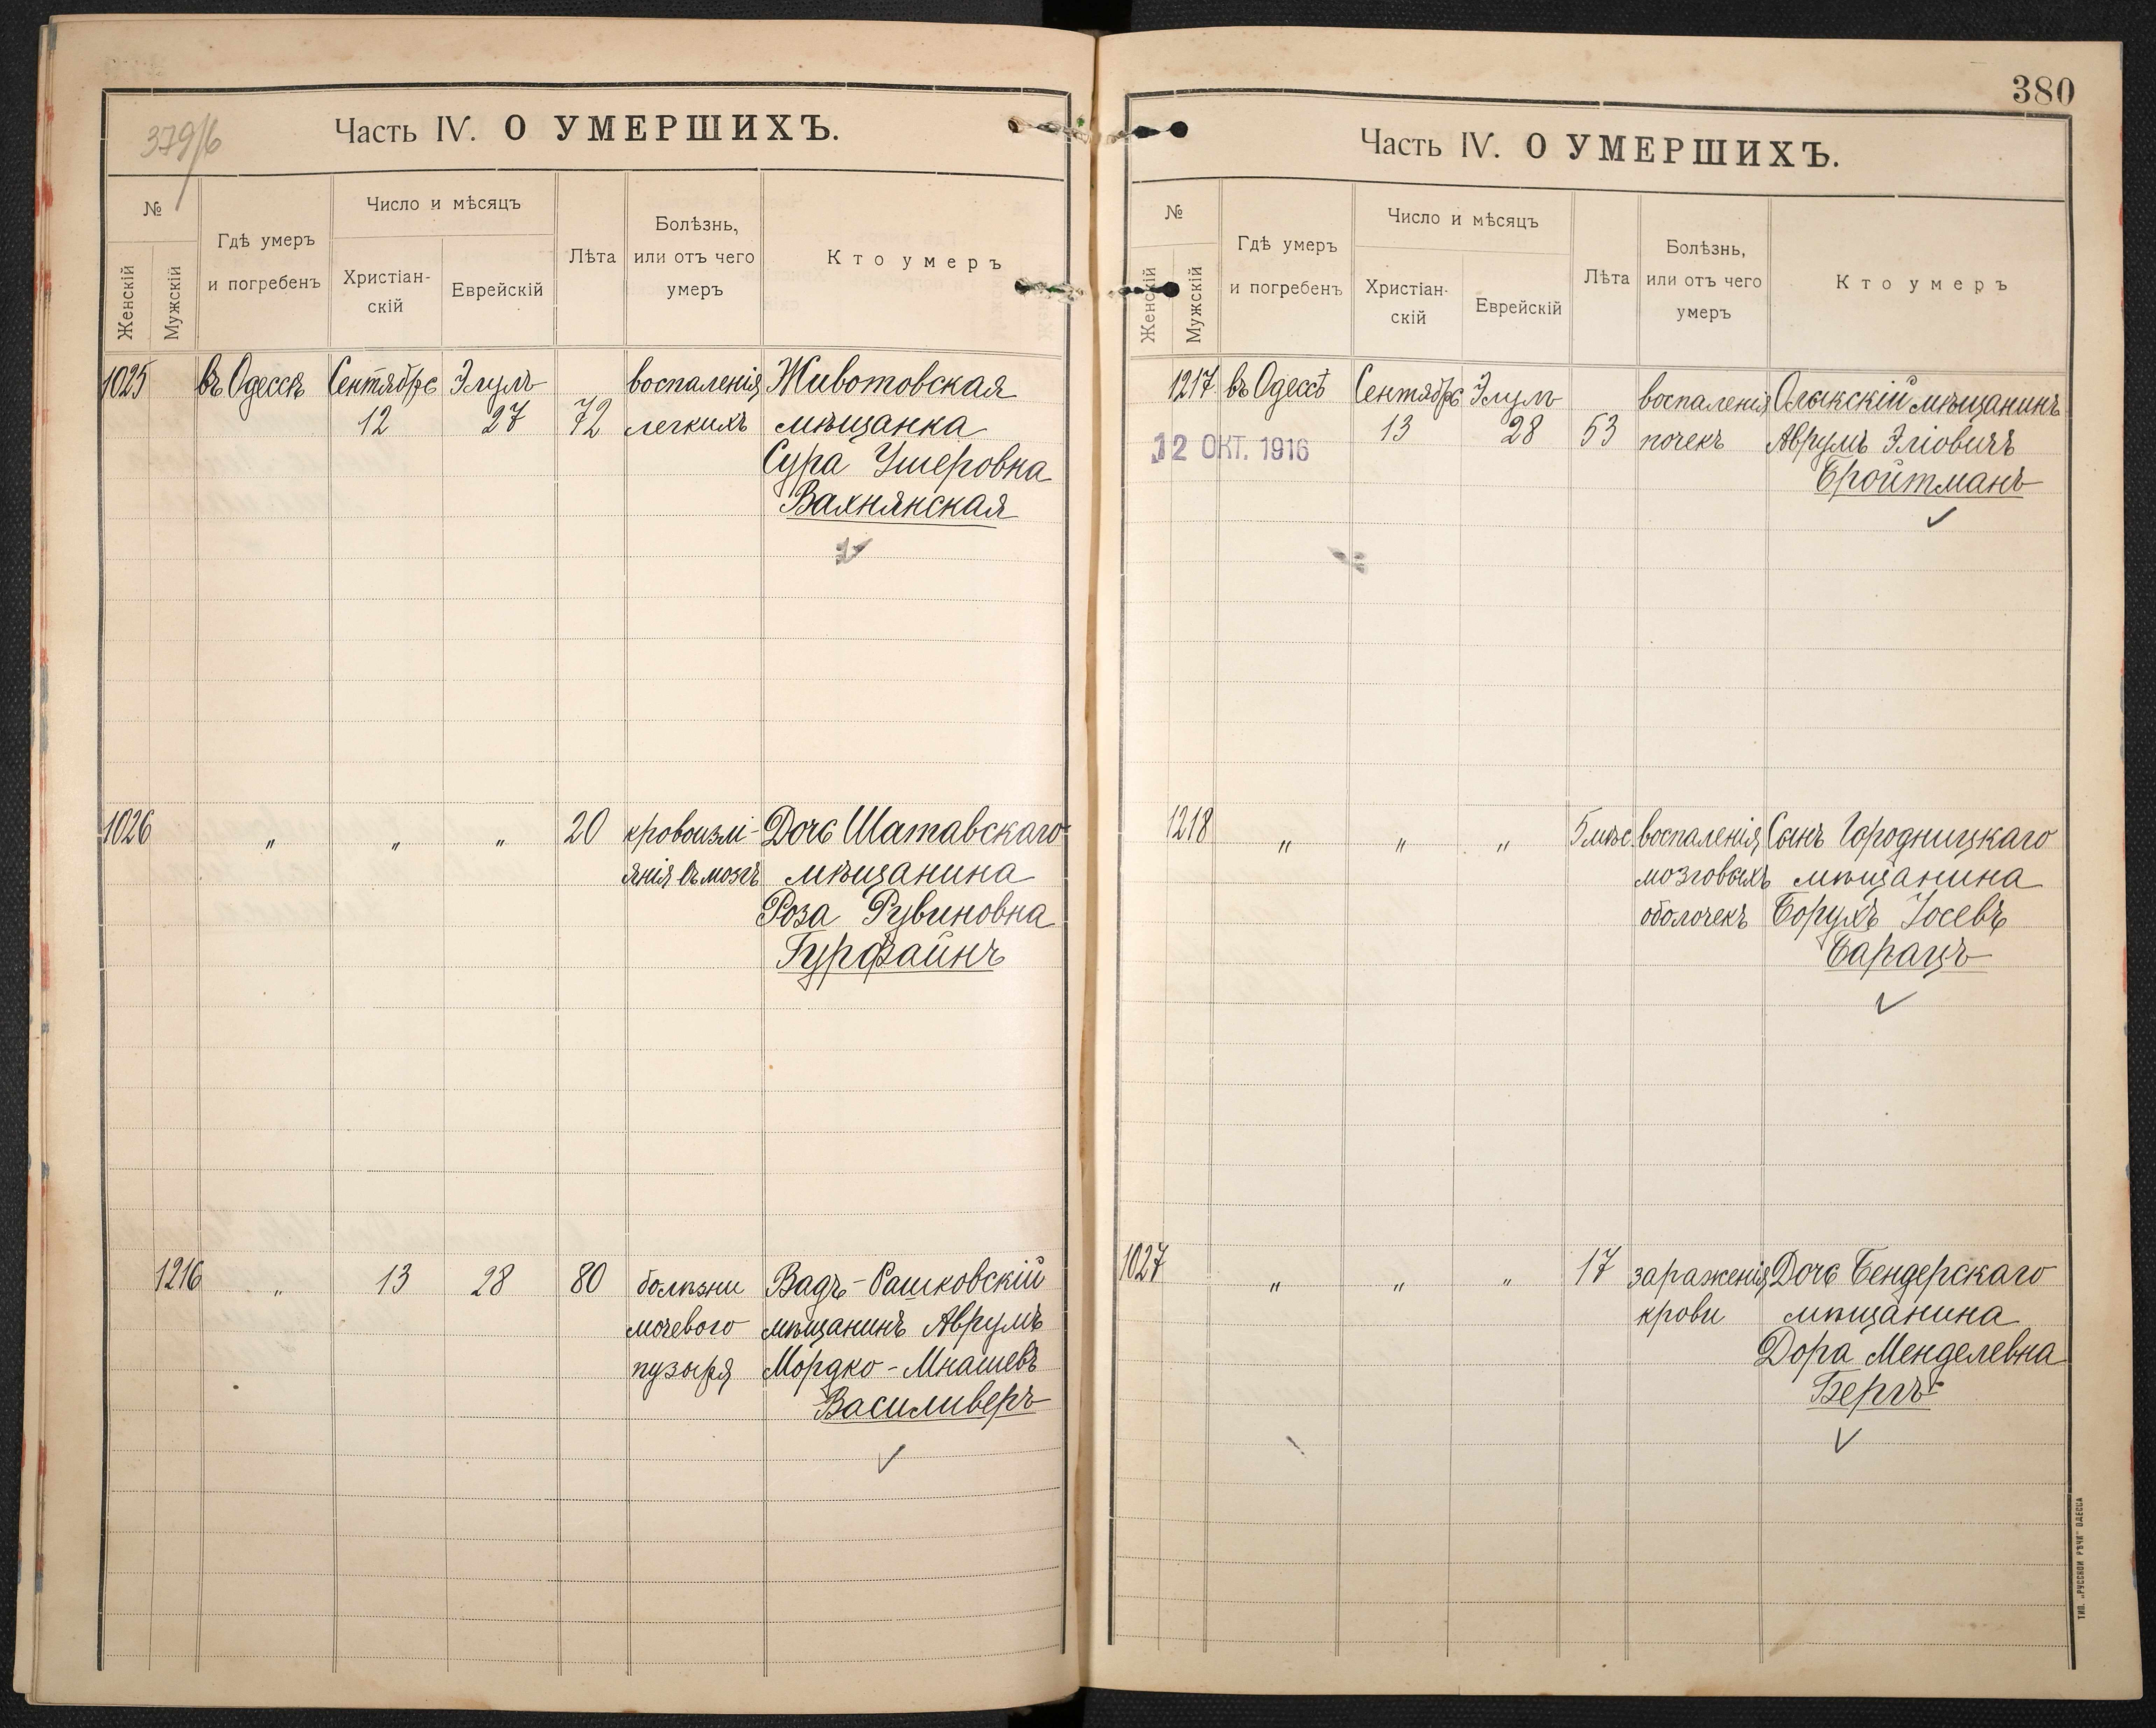 379/6
Часть IV. О УМЕРШИХЪ.
№
Женскій
Мужскій
Гдѣ умеръ
и погребенъ
Число и мѣсяцъ
Христіан-
скій
Еврейскій
Лѣта
Болѣзнь,
или отъ чего
умеръ
Кто умеръ
1025 въ Одессѣ Сентябрь Элулъ воспаленія Животовская
12 27 72 легкихъ мѣщанка
Сура Ушеровна
Вахнянская
1026 „ „ „ 20 кровоизлі- Дочь Шатавскаго
янія въ мозгъ мѣщанина
Роза Рувиновна
Гурфайнъ
1216 „ 13 28 80 болѣзни Вадъ-Рашковскій
мочевого мѣщанинъ Аврумъ
пузыря Мордко-Мнашевъ
Василиверъ
380
Часть IV. О УМЕРШИХЪ.
№
Женскій
Мужскій
Гдѣ умеръ
и погребенъ
Число и мѣсяцъ
Христіан-
скій
Еврейскій
Лѣта
Болѣзнь,
или отъ чего
умеръ
Кто умеръ
1217 въ Одессѣ Сентябрь Элулъ воспаленія мѣщанинъ
13 28 53 почекъ Аврумъ Эліовичъ
12 ОКТ. 1916
Бройтманъ
1218 „ „ „ 5 мѣс. воспаленія Сынъ Городницкаго
мозговыхъ мѣщанина
оболочекъ Борухъ Іосевъ
Барацъ
1027 „ „ „ 17 зараженія Дочь Бендерскаго
крови мѣщанина
Дора Менделевна
Бергъ
ТИП. „РУССКОЙ РѢЧИ" ОДЕССА